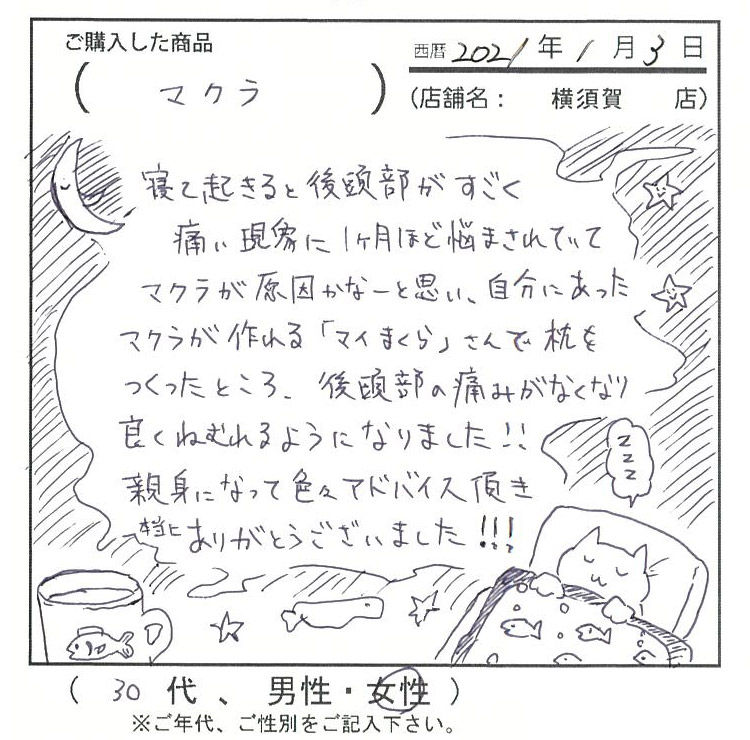 ご購入した商品
(マクラ)
西暦2021年1月3日
(店舗名: 横須賀 店)
寝て起きると後頭部がすごく
痛い現象に1ヶ月ほど悩まされていて
マクラが原因かなーと思い、自分にあった
マクラが作れる「マイまくら」さんで枕を
つくったところ、後頭部の痛みがなくなり
良くねむれるようになりました!!
親身になって色々アドバイス頂き
本当にありがとうございました!!!
zzz
(30代、男性・女性)
※ご年代、ご性別をご記入下さい。